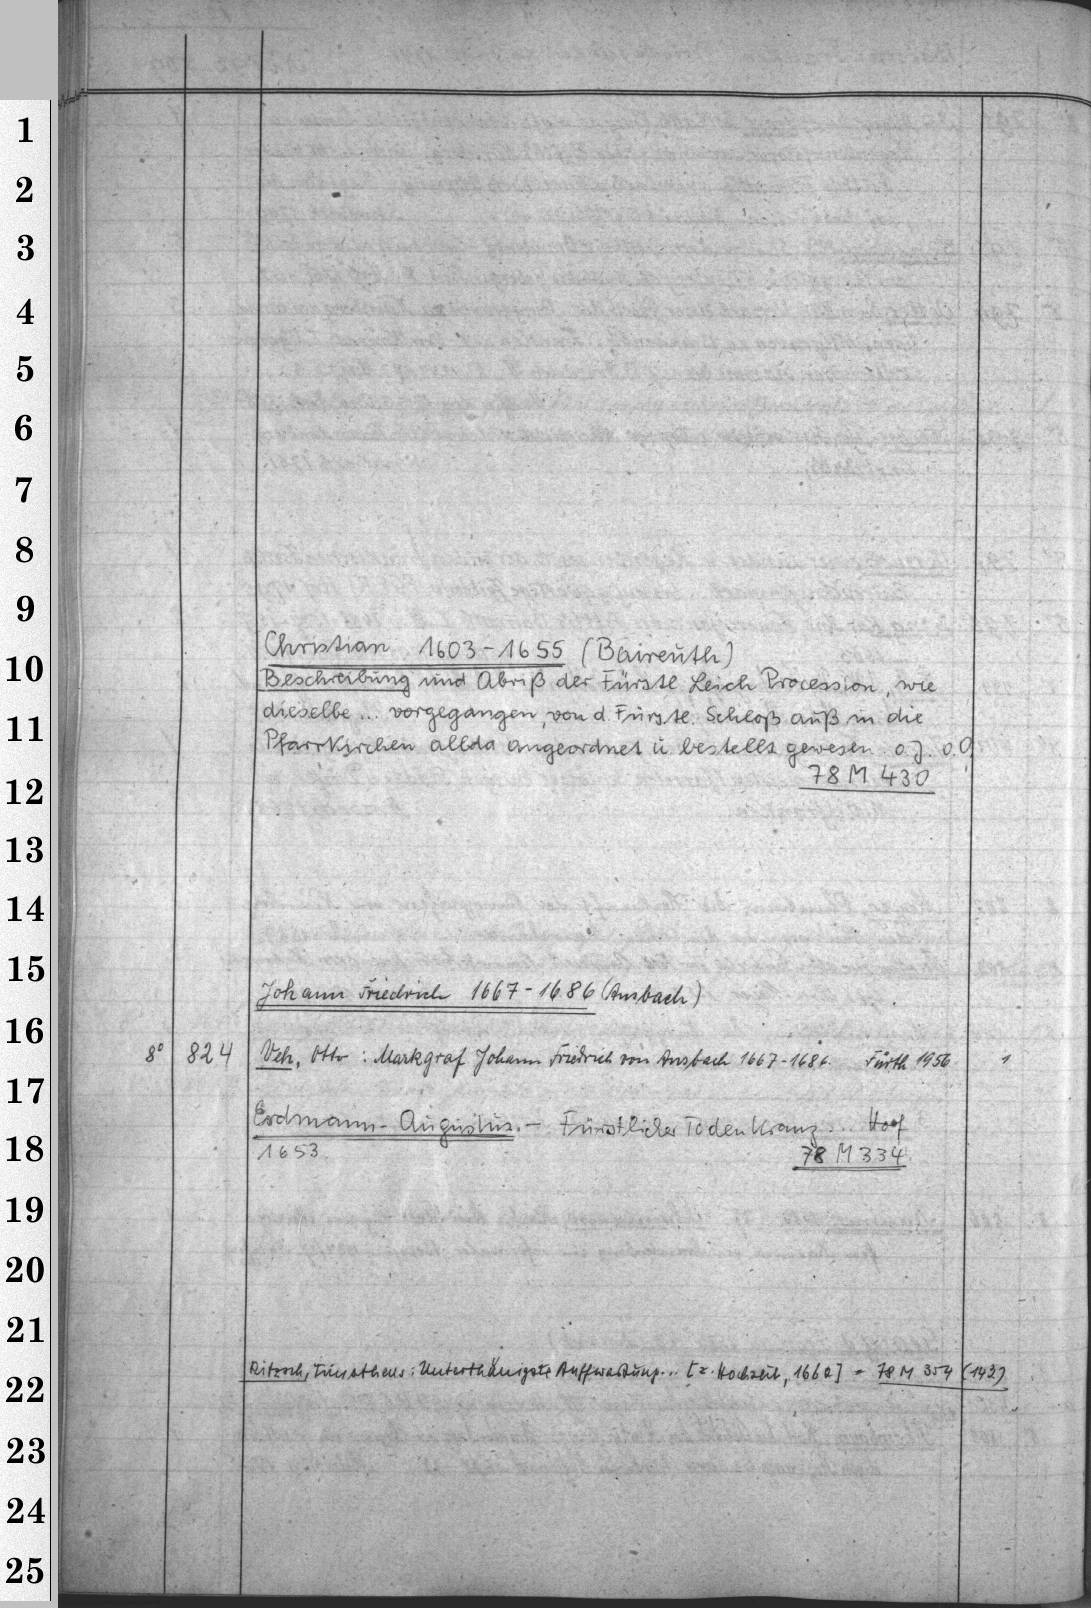 1
2
3
4
5
6
7
8
9
Christian 1603-1655 (Baireuth)
10
Beschreibung und Abriß der Fürstl Leich Procession, wie
dieselbe ... vorgegangen, von d. Fürstl. Schloß auß in die
11
Pfarrkirchen allda angeordnet u bestellt gewesen. o.J. o.O.
78 M 430
12
13
14
15
Johann Friedrich 1667-1686 (Ansbach)
16
8° 824 Veh, Otto: Markgraf Johann Friedrich von Ansbach 1667-1686. Fürth 1956 1
17
Erdmann-Augustus. – Fürstlicher Todenkranz ... Hoof
18
1653. 78 M 334
19
20
21
Ritzsch, Timotheus: Unterthänigste Auffwartung... [z. Hochzeit, 1662] = 78 M 354 (143)
22
23
24
25